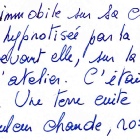 immobile sur sa c
hypnotisée par la
devant elle, sur la
l'atelier. C'était
Une terre cuite
chaude, ro